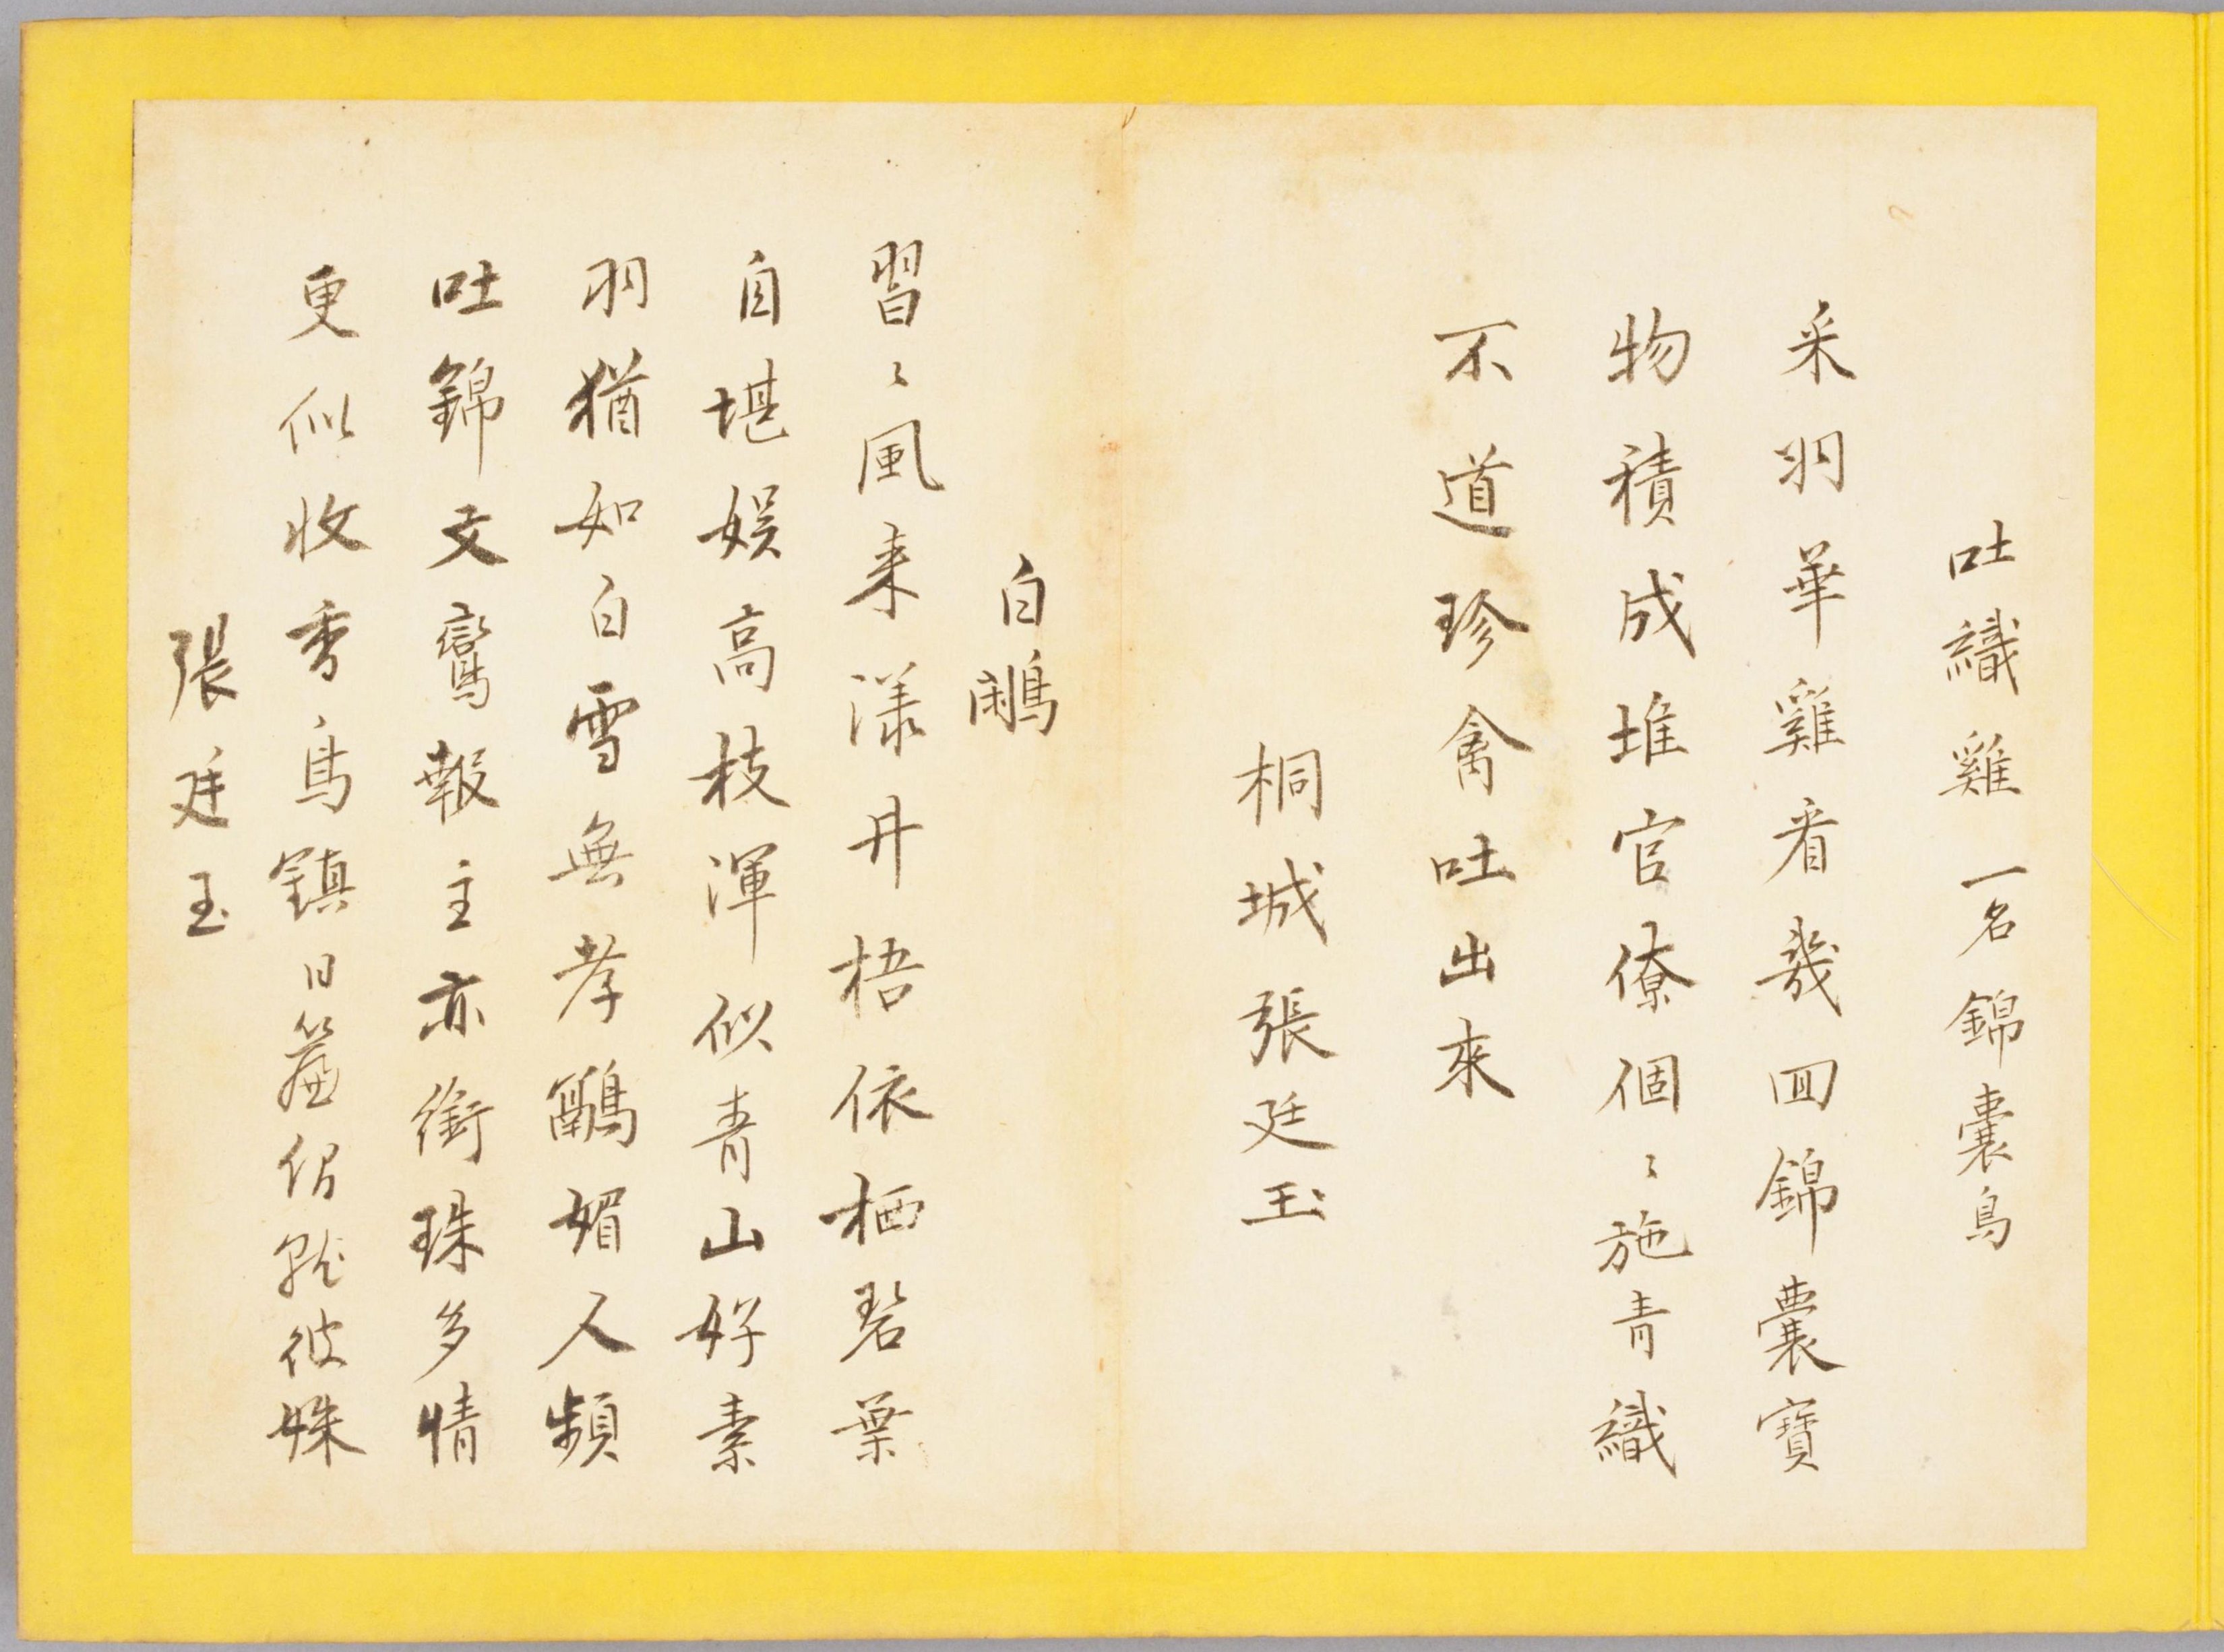 吐織雞 一名錦囊鳥
采羽華雞看幾回錦囊寶
物積成堆官僚個〻施青織
不道珍禽吐出來
桐城張廷玉
白鷳
習〻風来漾井梧依栖碧葉
自堪娱高枝渾似青山好素
羽猶如白雪無孝鸝媚人頻
吐錦文鸞報主亦銜珠多情
更似收香鳥鎮日簷彼姝
張廷玉